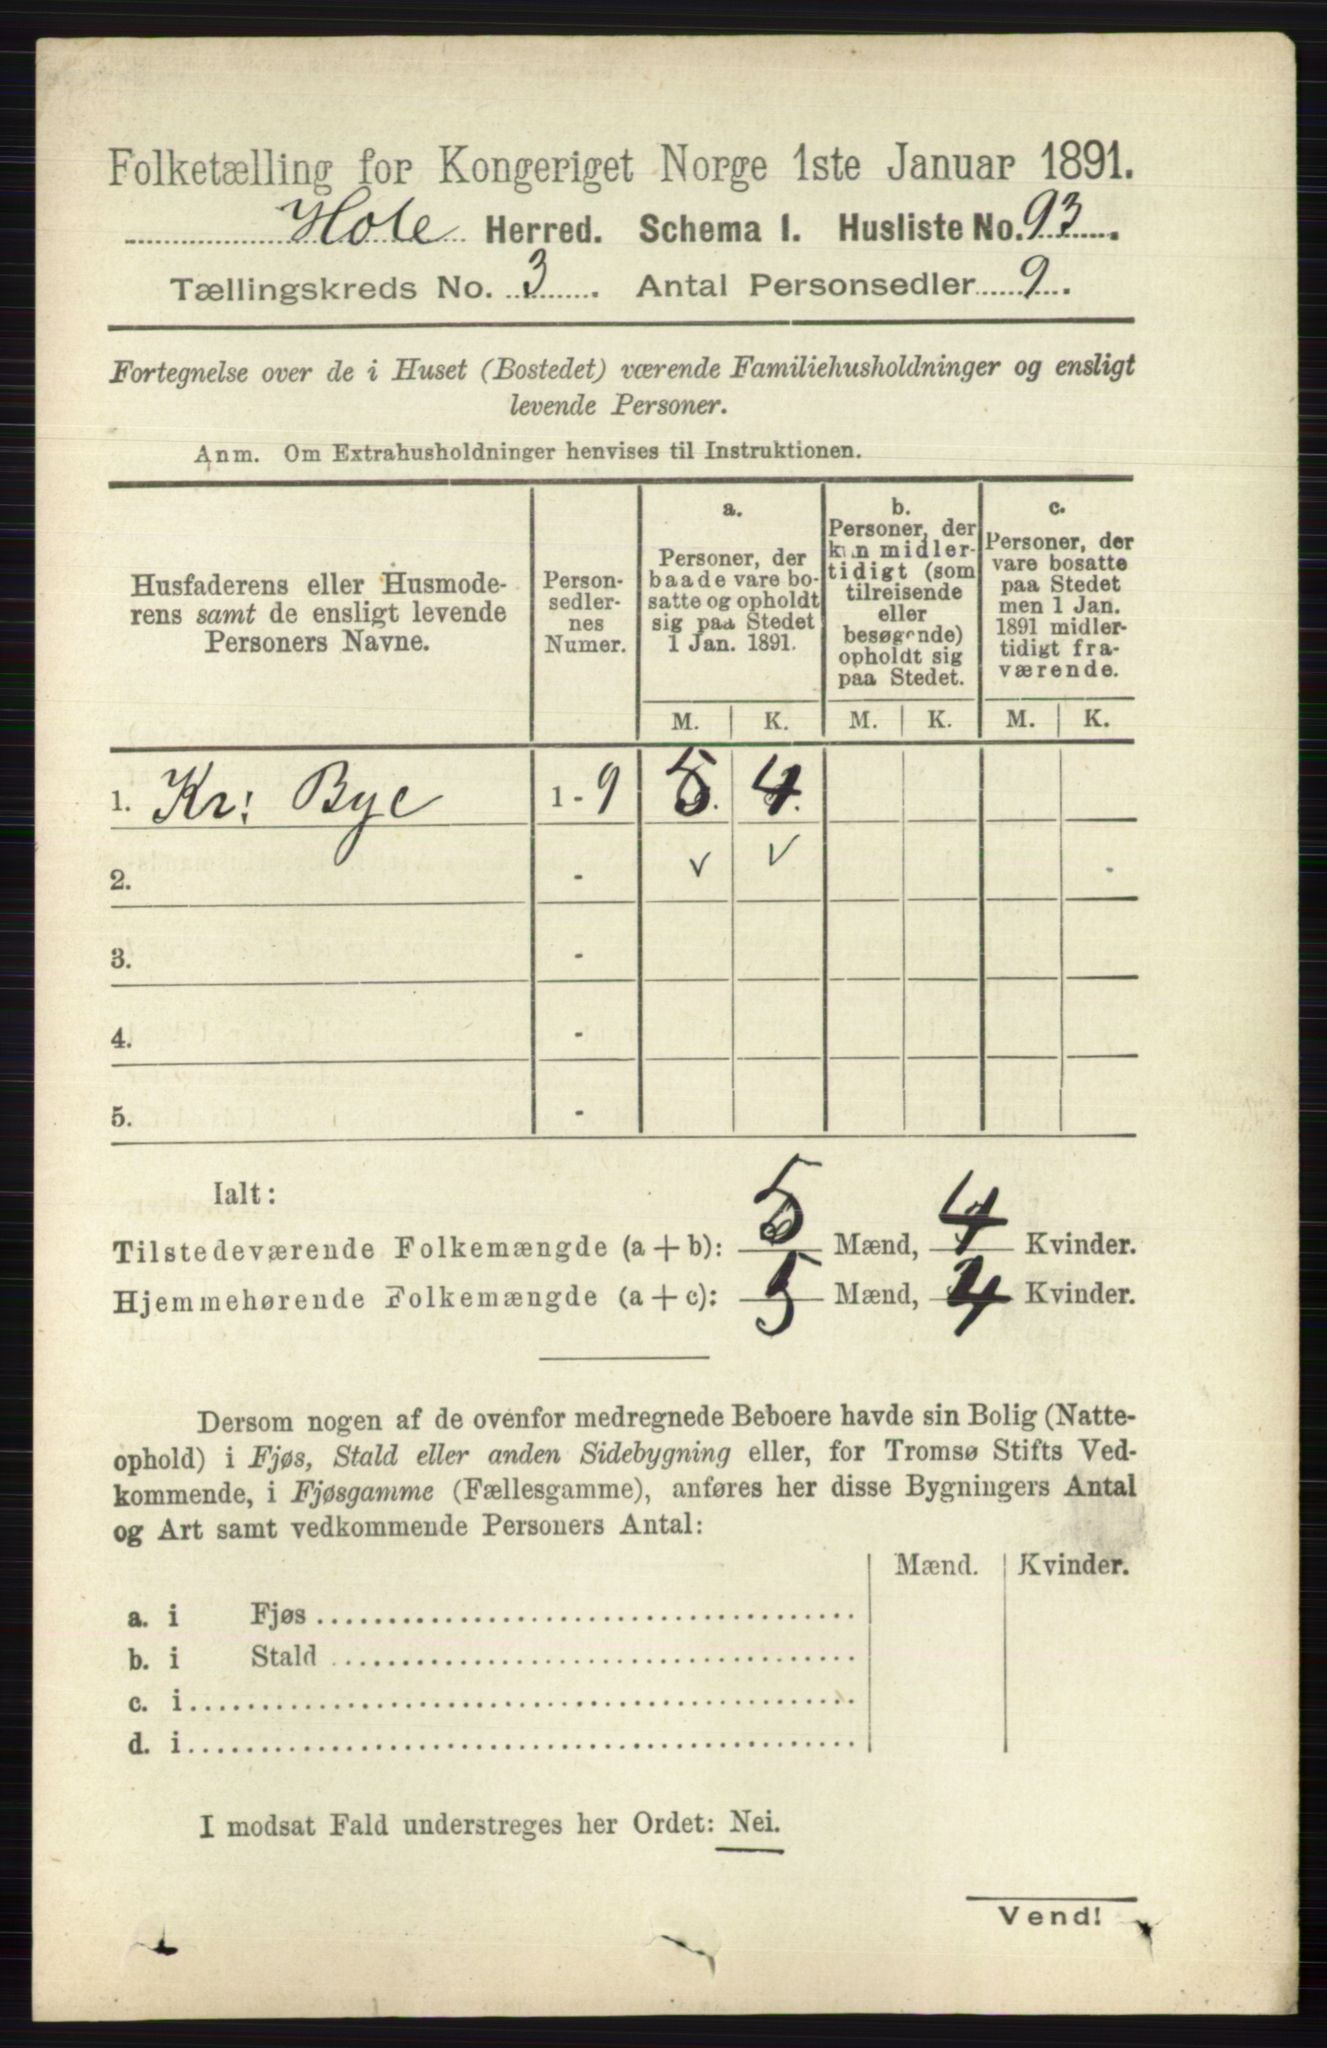 Folketælling for Kongeriget Norge 1ste Januar 1891.
Hole Herred. Schema I. Husliste No. 93.
Tællingskreds No. 3. Antal Personsedler 9.
Fortegnelse over de i Huset (Bostedet) værende Familiehusholdninger og ensligt
levende Personer.
Anm. Om Extrahusholdninger henvises til Instruktionen.
Husfaderens eller Husmode-
rens samt de ensligt levende
Personers Navne.
Person-
sedler-
nes
Numer.
a.
Personer, der
baade vare bo-
satte og opholdt
sig paa Stedet
1 Jan. 1891.
b.
Personer, der
kun midler-
tidigt (som
tilreisende
eller
besøgende)
opholdt sig
paa Stedet.
c.
Personer, der
vare bosatte
paa Stedet
men 1 Jan.
1891 midler-
tidigt fra-
værende.
M. K. M. K. M. K.
1. Kr: Bye 1 - 9 5 4
2. - √ √
3. -
4. -
5. -
Ialt:
Tilstedeværende Folkemængde (a + b): 5 Mænd, 4 Kvinder.
Hjemmehørende Folkemængde (a + c): 5 Mænd, 4 Kvinder.
Dersom nogen af de ovenfor medregnede Beboere havde sin Bolig (Natte-
ophold) i Fjøs, Stald eller anden Sidebygning eller, for Tromsø Stifts Ved-
kommende, i Fjøsgamme (Fællesgamme), anføres her disse Bygningers Antal
og Art samt vedkommende Personers Antal:
Mænd. Kvinder.
a. i Fjøs
b. i Stald
c. i
d. i
I modsat Fald understreges her Ordet: Nei.
Vend!